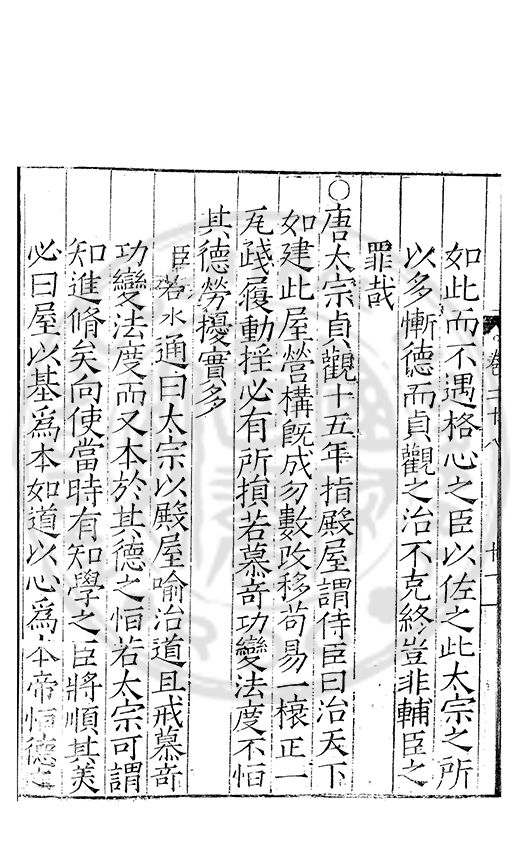 卷二十八
如此而不遇格心之臣以佐之此太宗之所
以多慚德而貞觀之治不克終豈非輔臣之
罪哉
○唐太宗貞觀十五年指殿屋謂侍臣曰治天下
如建此屋營構旣成勿數改移苟易一榱正一
瓦踐履動揺必有所損若慕竒功變法度不恒
其德勞擾實多
臣若水通曰太宗以殿屋喻治道且戒慕竒
功變法度而又本於其德之恒若太宗可謂
知進脩矣向使當時有知學之臣將順其美
必曰屋以基爲本如道以心爲本帝恒德之